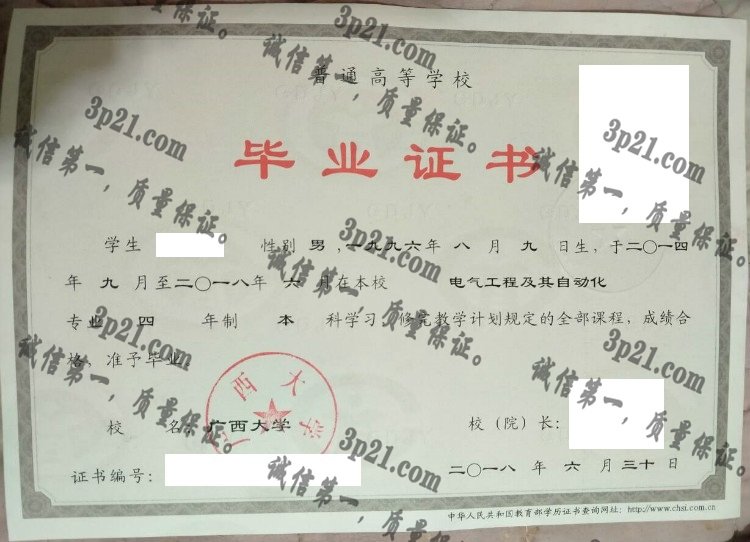 普通高等学校
毕业证书
学生 性别 男,一九九六年 八 月 九 日生,于二〇一四
年 九 月至二〇一八年 六 月在本校 电气工程及其自动化
专业 四 年制 本 科学习,修完教学计划规定的全部课程,成绩合
格,准予毕业
校 名:广西大学 校(院)长:
广西大学
证书编号: 二〇一八 年 六 月 三十 日
中华人民共和国教育部学历证书查询网址:http://www.chsi.com.cn
3p21.com
诚信第一,质量保证。
3p21.com
诚信第一,质量保证。
3p21.com
诚信第一,质量保证。
3p21.com
诚信第一,质量保证。
3p21.com
诚信第一,质量保证。
3p21.com
诚信第一,质量保证。
3p21.com
诚信第一,质量保证。
3p21.com
诚信第一,质量保证。